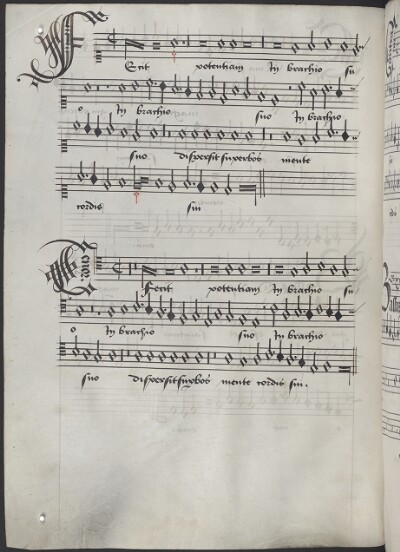 Fecit potentiam In brachio su
o In brachio suo In brachio
suo dispersit superbos mente
cordis sui
Tenor
Fecit potentiam In brachio su
o In brachio suo In brachio
suo dispersit supbos mente cordis sui.